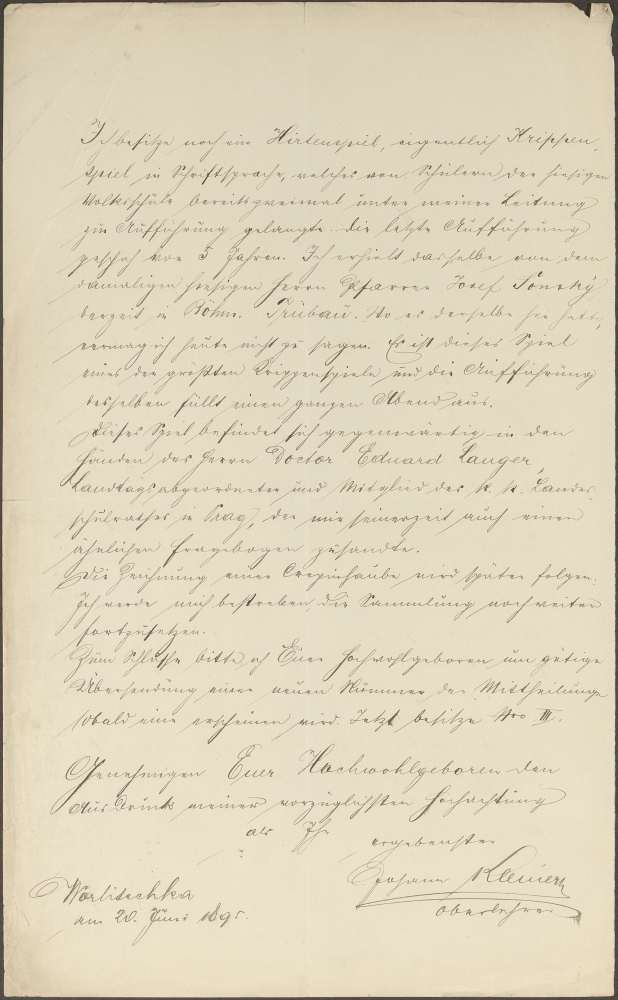 Ich besitze noch ein Hirtenspiel, eigentlich Krippen-
spiel in Schriftsprache, welches von Schülern der hiesigen
Volksschule bereits zweimal unter meiner Leitung
zur Aufführung gelangte. Die letzte Aufführung
geschah vor 5 Jahren. Ich erhielt dasselbe von dem
damaligen hiesigen Herrn Pfarrer Josef
derzeit in Böhm. Trübau. Wo es derselbe her hat,
vermag ich heute nicht zu sagen. Es ist dieses Spiel
eines der größten Krippenspiele und die Aufführung
desselben füllt einen ganzen Abend aus.
Dieses Spiel befindet sich gegenwärtig in den
Händen des Herrn Doctor Eduard Langer,
Landtagsabgeordneter und Mitglied des k. k. Landes-
schulrathes in Prag, der mir seinerzeit auch einen
ähnlichen Fragebogen zusandte.
Die Zeichnung einer wird später folgen.
Ich werde mich bestreben die Sammlung noch weiter
fortzusetzen.
Zum Schlusse bitte ich Euer Hochwohlgeboren um gütige
Übersendung einer neuen Nummer der Mittheilungen
sobald eine erscheinen wird. Jetzt besitze Nro III.
Genehmigen Euer Hochwohlgeboren den
Ausdruck meiner vorzüglichsten Hochachtung
als Ihr
ergebenster
Johann
Oberlehrer
Worlitschka
am 20. Juni 1895.